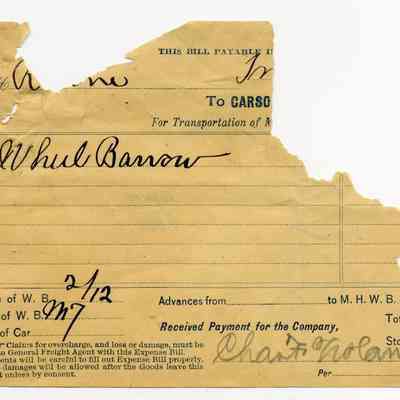 THIS BILL PAYABLE I
To CARSO
For Transportation of M
Wheel Barrow
of W. B. 2/12
Advances from to M. H. W. B.
of W. B. M7
Tot
of Car
Received Payment for the Company,
Claims for overcharge, and loss or damage, must be
to General Freight Agent with this Expense Bill.
ents will be careful to fill out Expense Bill properly.
damages will be allowed after the Goods leave this
t unless by consent.
Sto
Chas F Nolan
Per